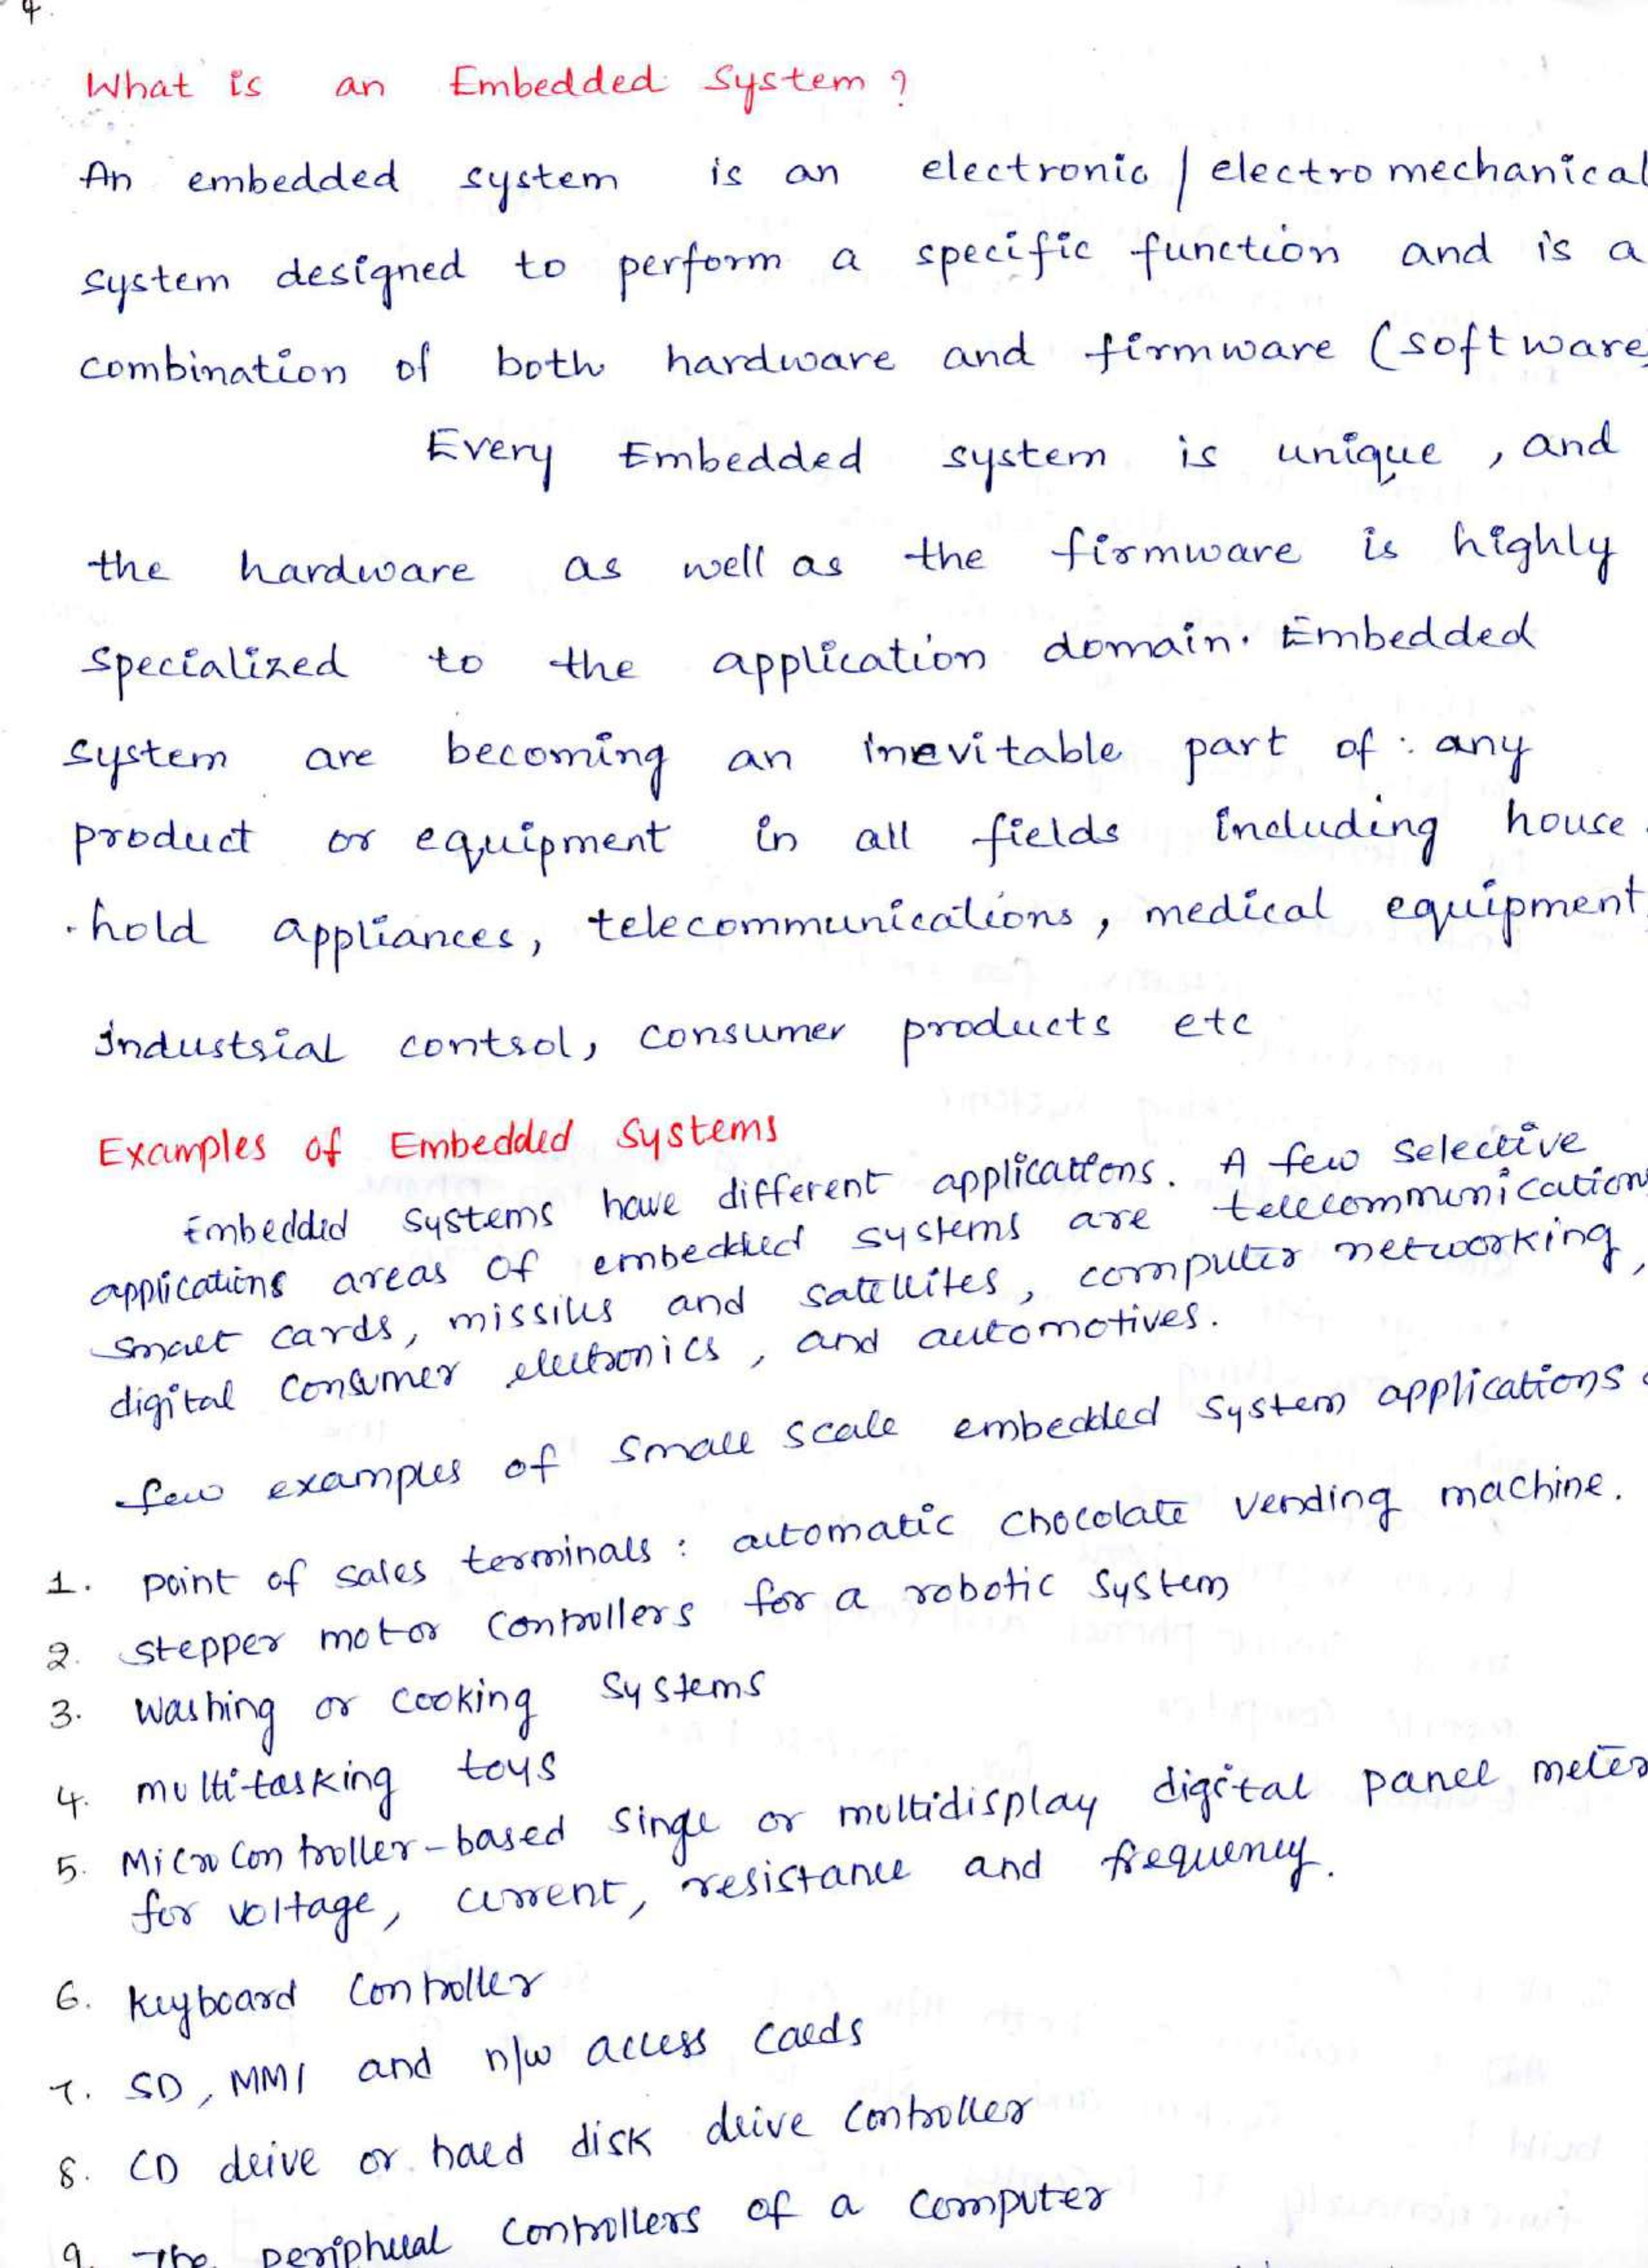 4.
What is an Embedded System ?
An embedded system is an electronic / electro mechanical
system designed to perform a specific function and is a
combination of both hardware and firmware (software
Every Embedded system is unique , and
the hardware as well as the firmware is highly
specialized to the application domain. Embedded
system are becoming an inevitable part of : any
product or equipment in all fields including house
-hold appliances, telecommunications, medical equipment
industrial control, consumer products etc
Examples of Embedded Systems
Embedded systems have different applications. A few Selective
applications areas of embedded systems are telecommunication
smart cards, missiles and satellites, computer networking,
digital consumer electronics, and automotives.
few examples of small scale embedded system applications
1. point of sales terminals : automatic chocolate vending machine.
2. stepper motor controllers for a robotic system
3. washing or cooking systems
4. multitasking toys
5. Microcontroller-based singe or multidisplay digital panel meter
for voltage, current, resistance and frequency.
6. keyboard controller
7. SD, MMI and n/w access cards
8. CD drive or hard disk drive controller
9. The peripheral controllers of a computer